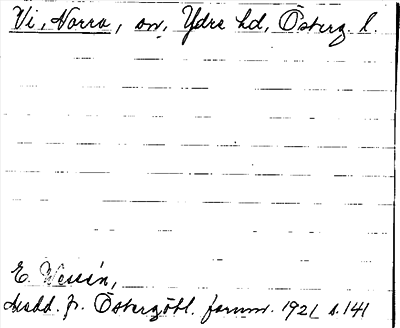 Vi, Norra, sn, Ydre hd, Österg. l.
E. Wessén,
Medd. fr. Östergötl. fornm. 1921 s. 141